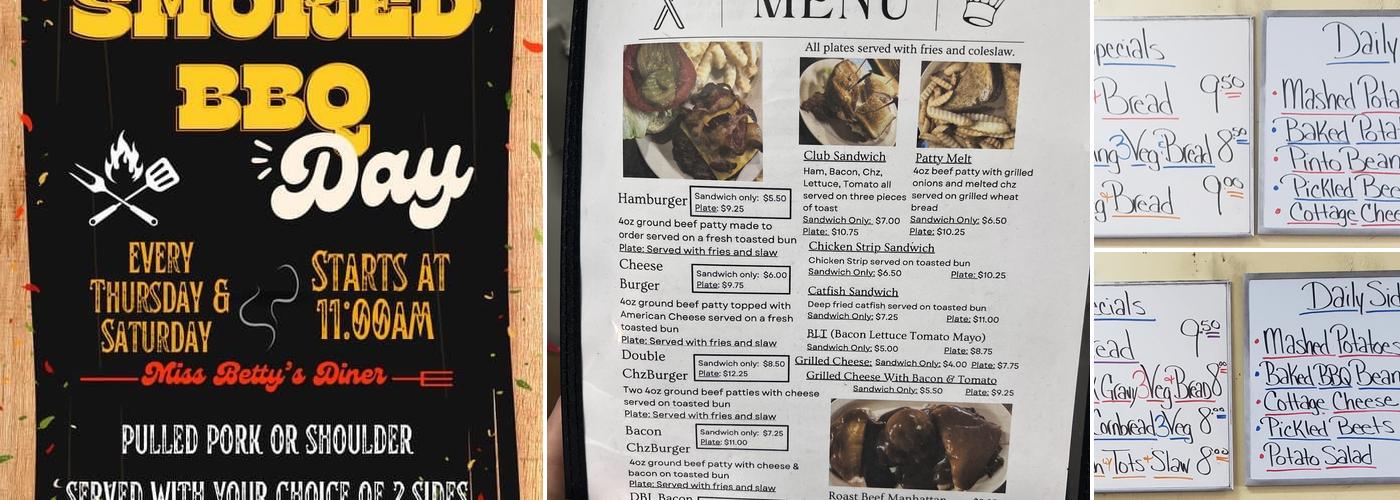 SMOKED
BBQ
Day
EVERY
THURSDAY &
SATURDAY
STARTS AT
11:00AM
Miss Betty's Diner
PULLED PORK OR SHOULDER
SERVED WITH YOUR CHOICE OF 2 SIDES
MENU
All plates served with fries and coleslaw.
Hamburger
Sandwich only: $5.50
Plate: $9.25
4oz ground beef patty made to
order served on a fresh toasted bun
Plate: Served with fries and slaw
Cheese
Burger
Sandwich only: $6.00
Plate: $9.75
4oz ground beef patty topped with
American Cheese served on a fresh
toasted bun
Plate: Served with fries and slaw
Double
ChzBurger
Sandwich only: $8.50
Plate: $12.25
Two 4oz ground beef patties with cheese
served on toasted bun
Plate: Served with fries and slaw
Bacon
ChzBurger
Sandwich only: $7.25
Plate: $11.00
4oz ground beef patty with cheese &
bacon on toasted bun
Plate: Served with fries and slaw
DBL Bacon
Club Sandwich
Ham, Bacon, Chz,
Lettuce, Tomato all
served on three pieces
of toast
Sandwich Only: $7.00
Plate: $10.75
Patty Melt
4oz beef patty with grilled
onions and melted chz
served on grilled wheat
bread
Sandwich Only: $6.50
Plate: $10.25
Chicken Strip Sandwich
Chicken Strip served on toasted bun
Sandwich Only: $6.50 Plate: $10.25
Catfish Sandwich
Deep fried catfish served on toasted bun
Sandwich Only: $7.25 Plate: $11.00
BLT (Bacon Lettuce Tomato Mayo)
Sandwich Only: $5.00 Plate: $8.75
Grilled Cheese: Sandwich Only: $4.00 Plate: $7.75
Grilled Cheese With Bacon & Tomato
Sandwich Only: $5.50 Plate: $9.25
Roast Beef Manhattan
pecials
Bread 9.50
ng 3 Veg Bread 8.50
g Bread 9.00
Daily
Mashed Pota
Baked Pota
Pinto Bean
Pickled Bee
Cottage Chee
ecials
ead 9.50
Gravy 3 Veg Bread 8
Cornbread 3 Veg 8.00
Slaw 8.00
Daily Sid
Mashed Potatoes
Baked BBQ Bean
Cottage Cheese
Pickled Beets
Potato Salad